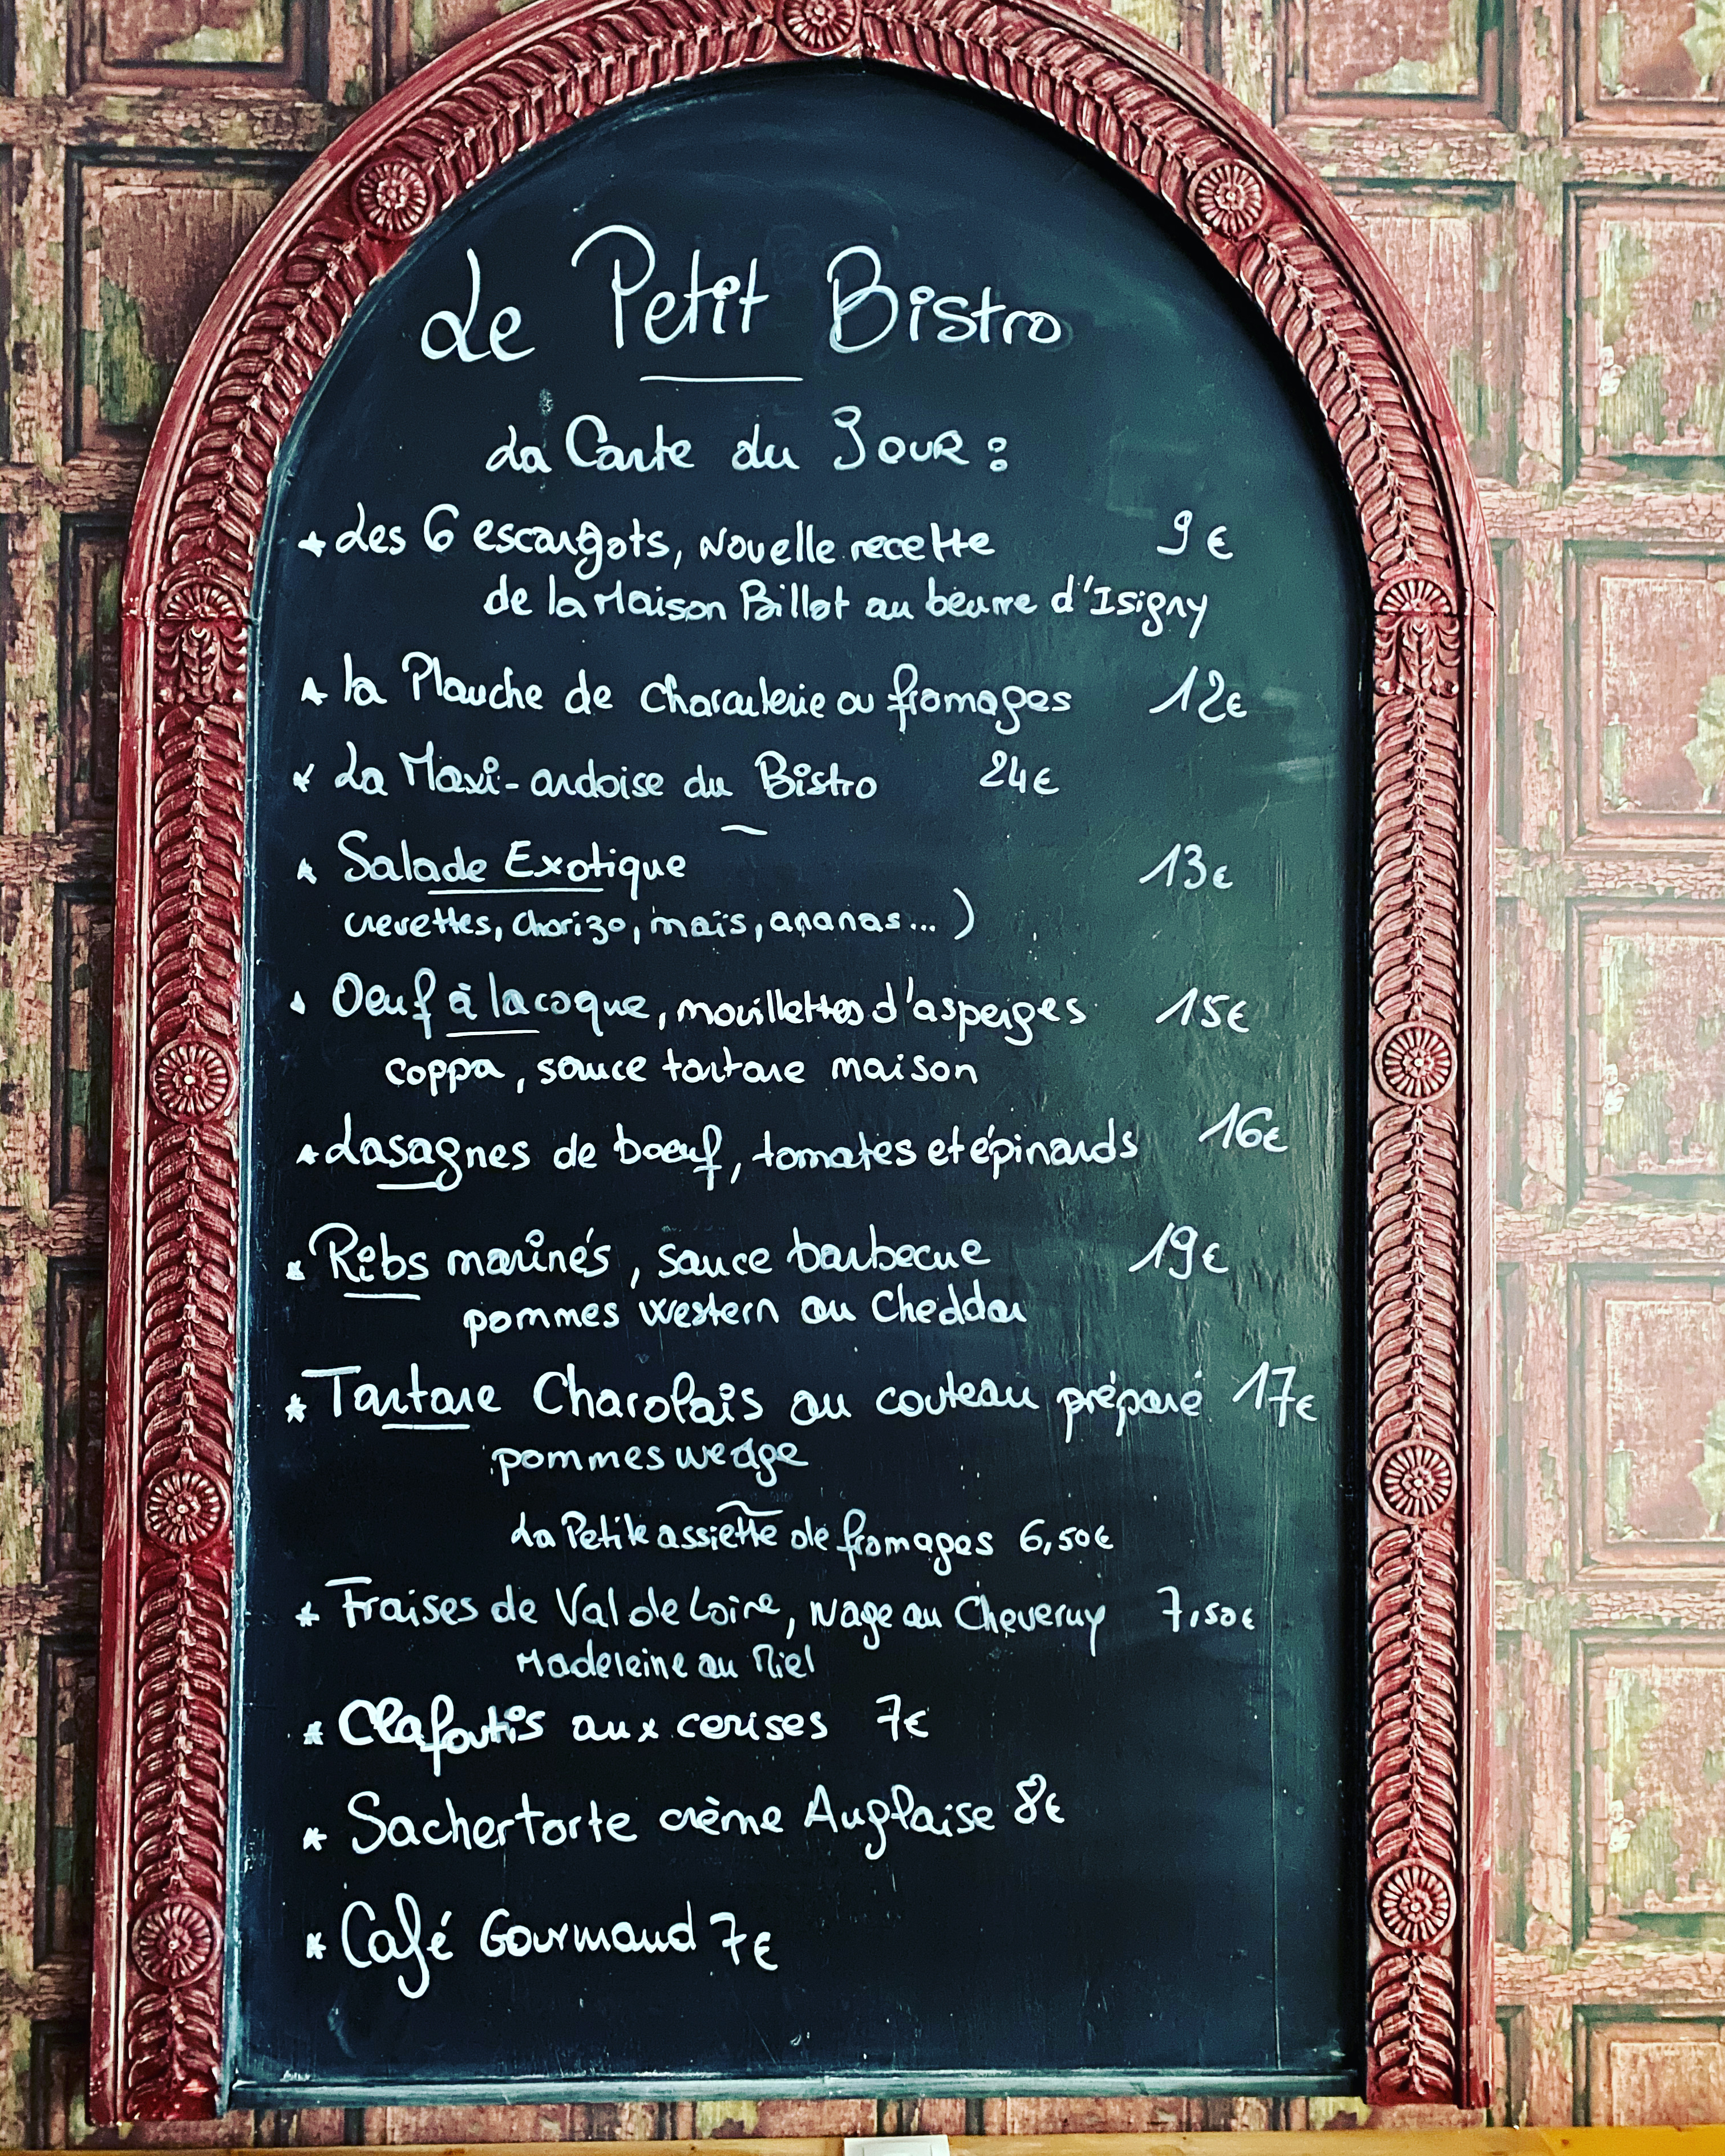 Le Petit Bistro
La Carte du Jour :
* Les 6 escargots, Nouvelle recette 9€
de la Maison Billot au beurre d'Isigny
* la Planche de charcuterie ou fromages 12€
* La Maxi-ardoise du Bistro 24€
* Salade Exotique 13€
crevettes, chorizo, maïs, ananas... )
* Oeuf à la coque, mouillettes d'asperges 15€
coppa, sauce tartare maison
* Lasagnes de boeuf, tomates et épinards 16€
* Ribs marinés, sauce barbecue 19€
pommes western au Cheddar
* Tartare Charolais au couteau préparé 17€
pommes wedge
La Petite assiette de fromages 6,50€
* Fraises de Val de Loire, nage au Cheverny 7,50€
Madeleine au Miel
* Clafoutis aux cerises 7€
* Sachertorte crème Anglaise 8€
* Café Gourmand 7€